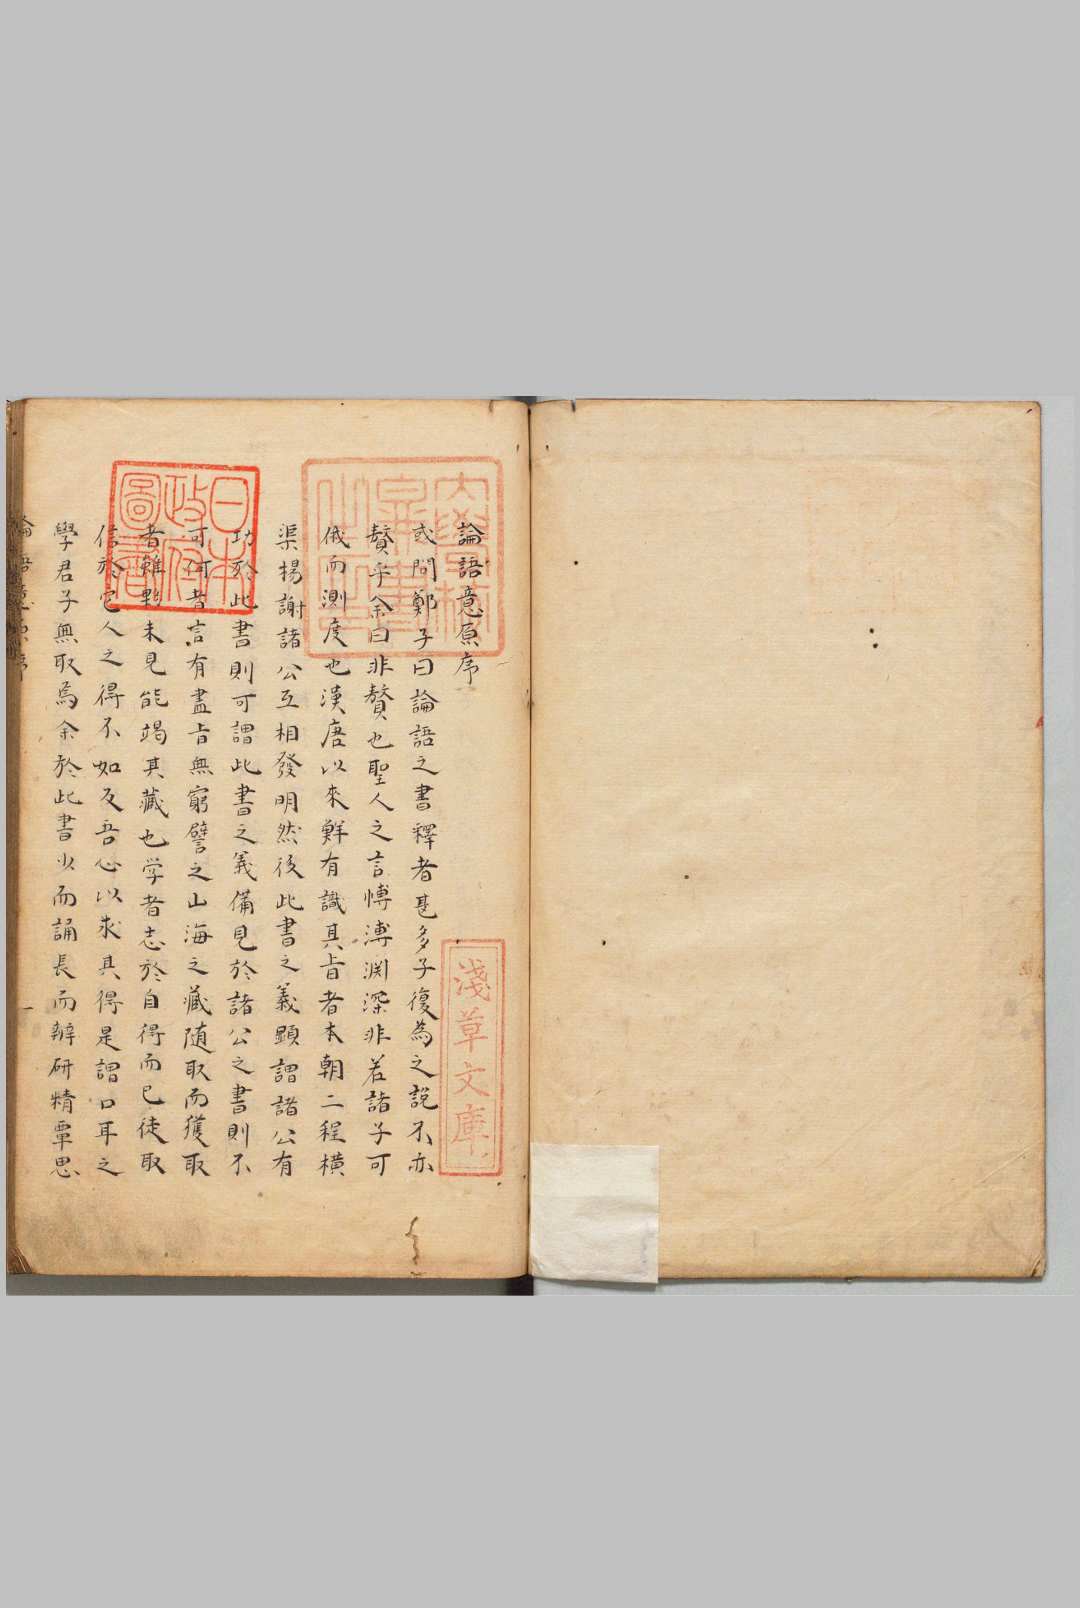 論語意原序
或問鄭子曰論語之書釋者甚多子復為之說不亦
贅乎余曰非贅也聖人之言愽溥淵深非若諸子可
俄而測度也漢唐以來鮮有識其旨者本朝二程橫
渠楊謝諸公互相發明然後此書之義顯謂諸公有
功於此書則可謂此書之義備見於諸公之書則不
可何者言有盡旨無窮譬之山海之藏随取而獲取
者雖夥未見能竭其藏也学者志於自得而已徒取
信於它人之得不如反吾心以求其得是謂口耳之
學君子無取焉余於此書少而誦長而辨研精覃思
論語意原序
一
日本
政府
圖書
淺草文庫